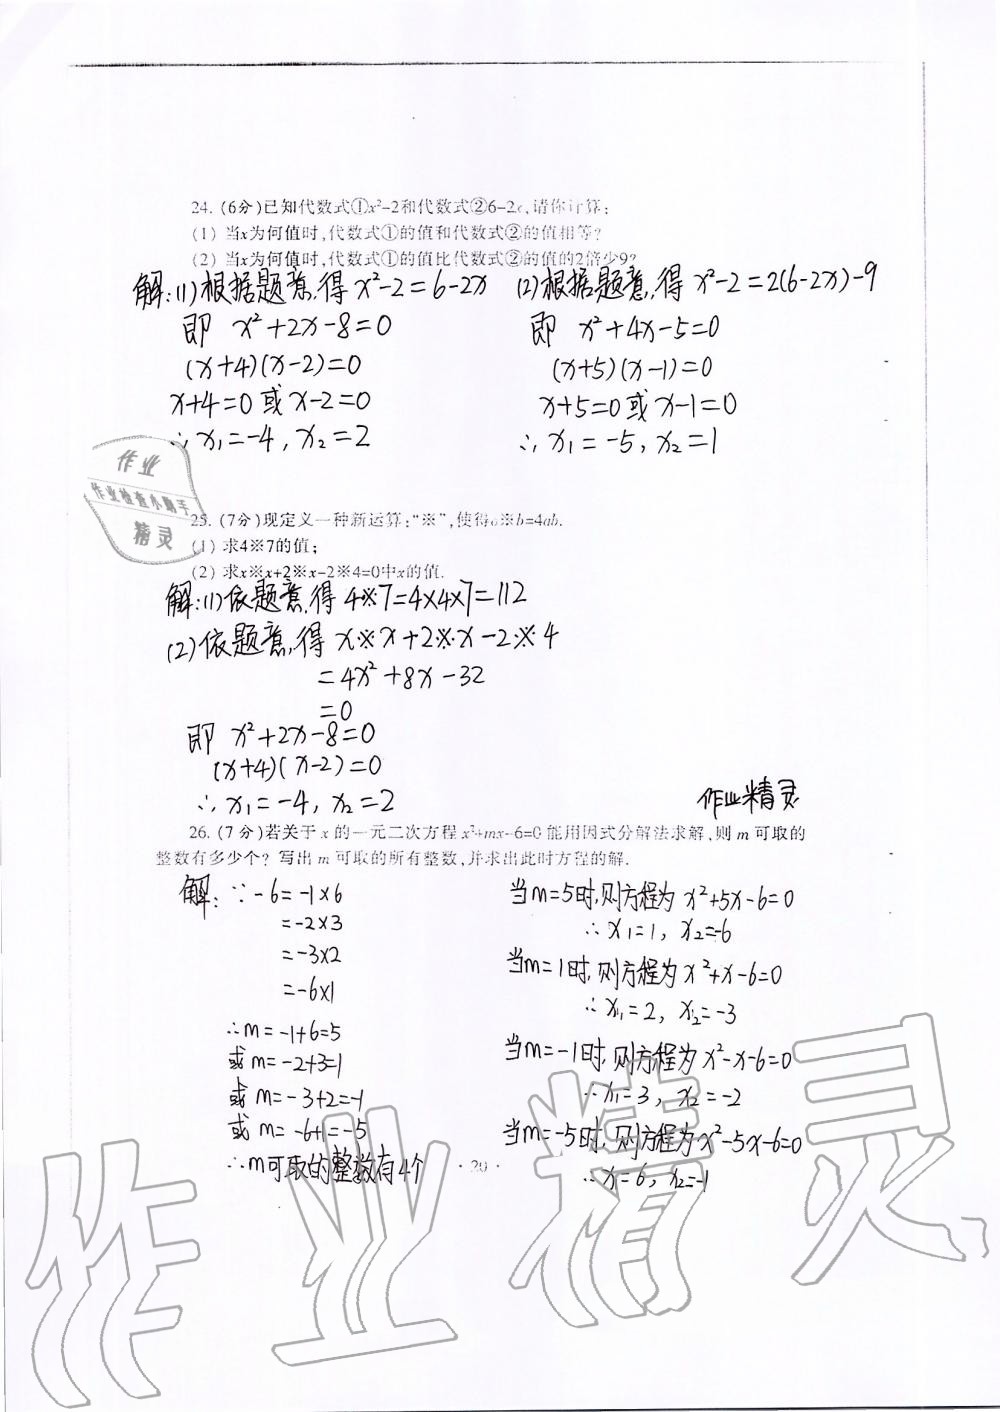 24. (6分)已知代数式①x²-2和代数式②6-2x,请你计算:
(1) 当x为何值时,代数式①的值和代数式②的值相等?
(2) 当x为何值时,代数式①的值比代数式②的值的2倍少9?
解:(1)根据题意,得 x²-2=6-2x
即 x²+2x-8=0
(x+4)(x-2)=0
x+4=0 或 x-2=0
∴x₁=-4, x₂=2
(2)根据题意,得 x²-2=2(6-2x)-9
即 x²+4x-5=0
(x+5)(x-1)=0
x+5=0 或 x-1=0
∴x₁=-5, x₂=1
作业
作业检查小助手
精灵
25. (7分)现定义一种新运算:“※”,使得a※b=4ab.
(1) 求4※7的值;
(2) 求x※x+2※x-2※4=0中x的值.
解:(1)依题意,得 4※7=4×4×7=112
(2)依题意,得 x※x+2※x-2※4
=4x²+8x-32
=0
即 x²+2x-8=0
(x+4)(x-2)=0
∴x₁=-4, x₂=2
作业精灵
26. (7分)若关于 x 的一元二次方程 x²+mx-6=0 能用因式分解法求解,则 m 可取的
整数有多少个? 写出 m 可取的所有整数,并求出此时方程的解.
解: ∵-6=-1×6
=-2×3
=-3×2
=-6×1
∴m=-1+6=5
或 m=-2+3=1
或 m=-3+2=-1
或 m=-6+1=-5
∴m可取的整数有4个
当m=5时,则方程为 x²+5x-6=0
∴x₁=1, x₂=-6
当m=1时,则方程为 x²+x-6=0
∴x₁=2, x₂=-3
当m=-1时,则方程为 x²-x-6=0
∴x₁=3, x₂=-2
当m=-5时,则方程为x²-5x-6=0
∴x=6, x₂=-1
· 20 ·
作业精灵